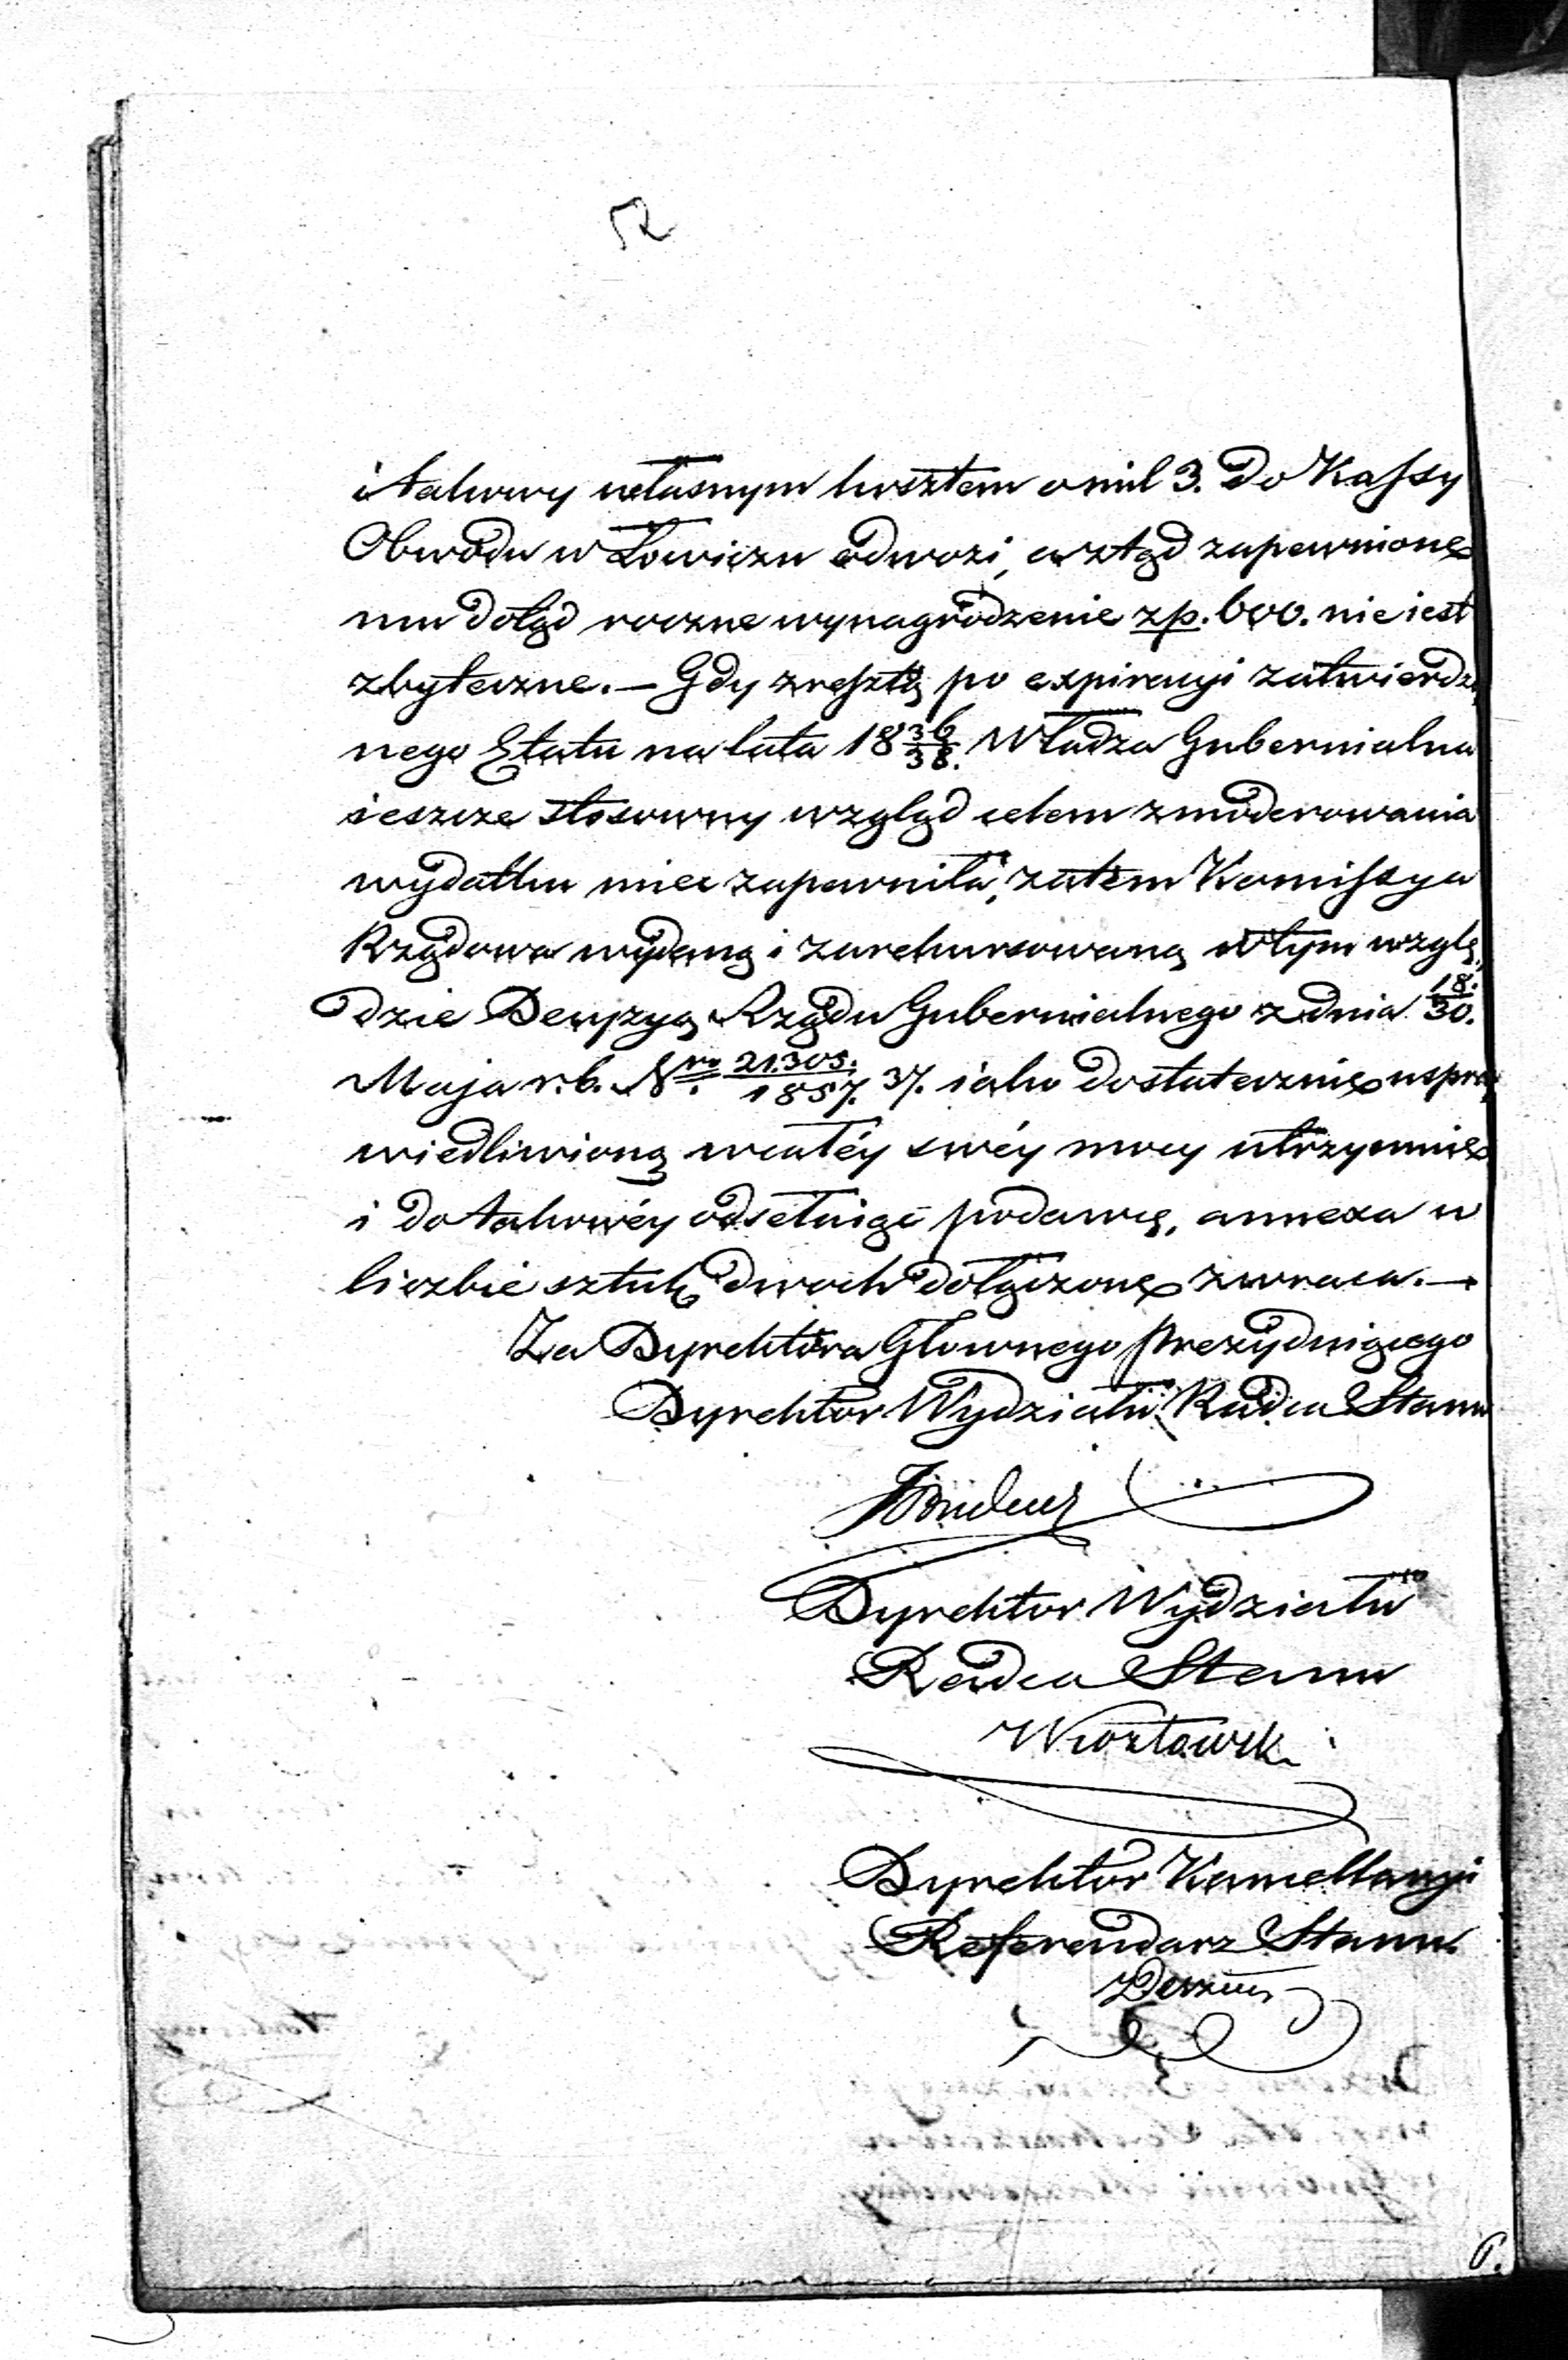 52
i takowy własnym kosztem o mil 3. do Kassy
Obwodu w Łowiczu odwozi, a ztąd zapewnione
mu dotąd roczne wynagrodzenie zp. 600. nie iest
zbyteczne. — Gdy zresztą po expiracyi zatwierdzo
nego Etatu na lata 18 36/38. Władza Gubernialna
ieszcze stosowny wzgląd celem zmoderowania
wydatku mieć zapewniła, zatem Kommissya
Rządowa wydaną i zarekursowaną w tym wzglę
dzie Decyzyą Rządu Gubernialnego z dnia 18./30.
Maja r. b. Nro 21.305./1857. 37. iako dostatecznie uspra
wiedliwioną w całéy swéy mocy utrzymuie
i do takowéy odsełaiąc podawcę, annexa w
liczbie sztuk dwoch dołączone zwraca. —
Za Dyrektora Głownego Prezyduiącego
Dyrektor Wydziału Radca Stanu
Dyrektor Wydziału
Radca Stanu
Dyrektor Kancellaryi
Referendarz Stanu